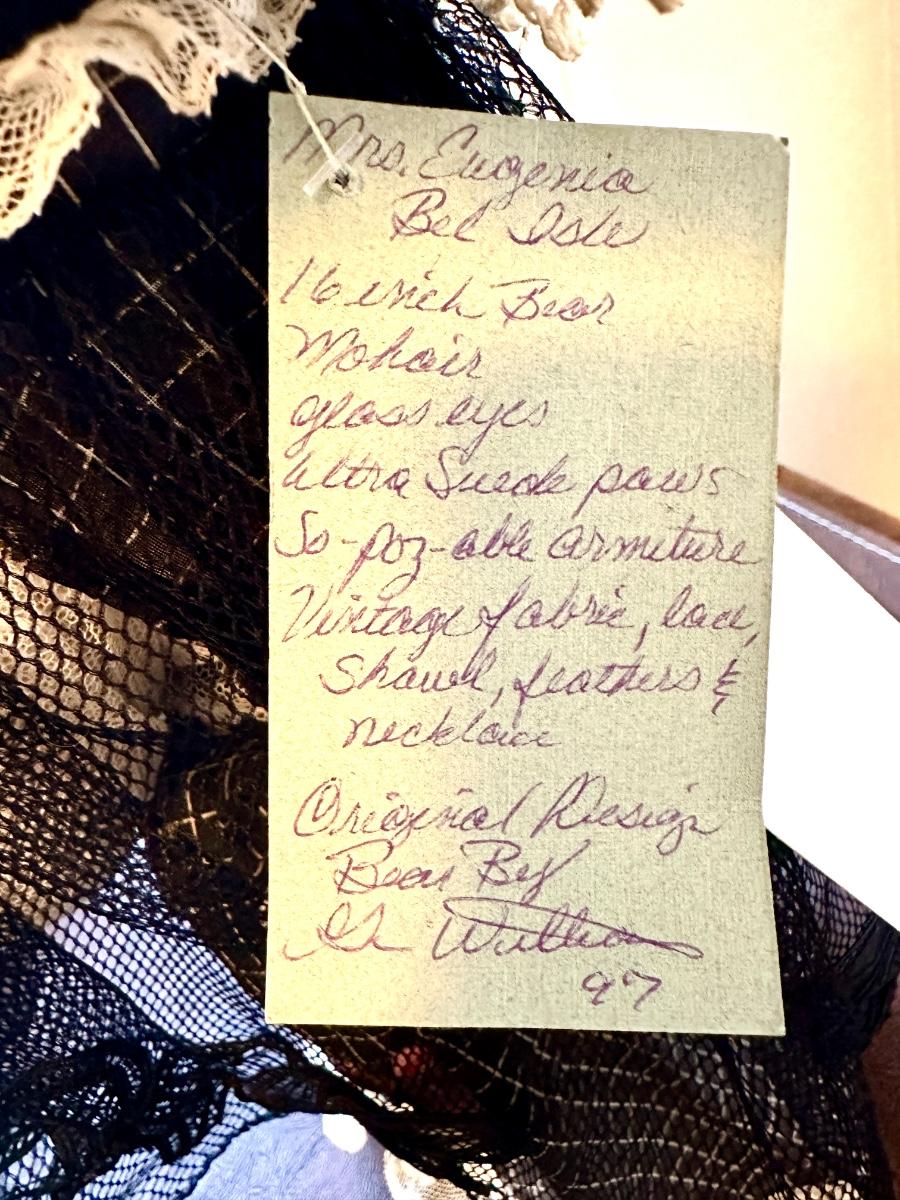 Mrs. Eugenia
Bel Isle
16 inch Bear
Mohair
glass eyes
ultra Suede paws
So-poz-able armeture
Vintage fabric, lace,
Shawl, feathers &
necklace
Original Design
Bear By
97